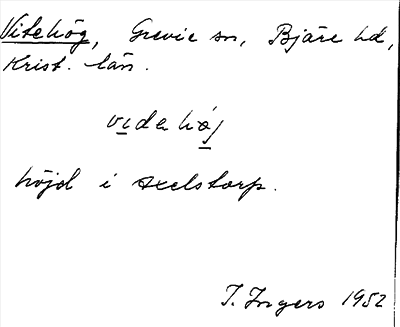 Vitehög, Grevie sn, Bjäre hd,
Krist. län.
videhøj
höjd i Axelstorp.
I. Ingers 1952